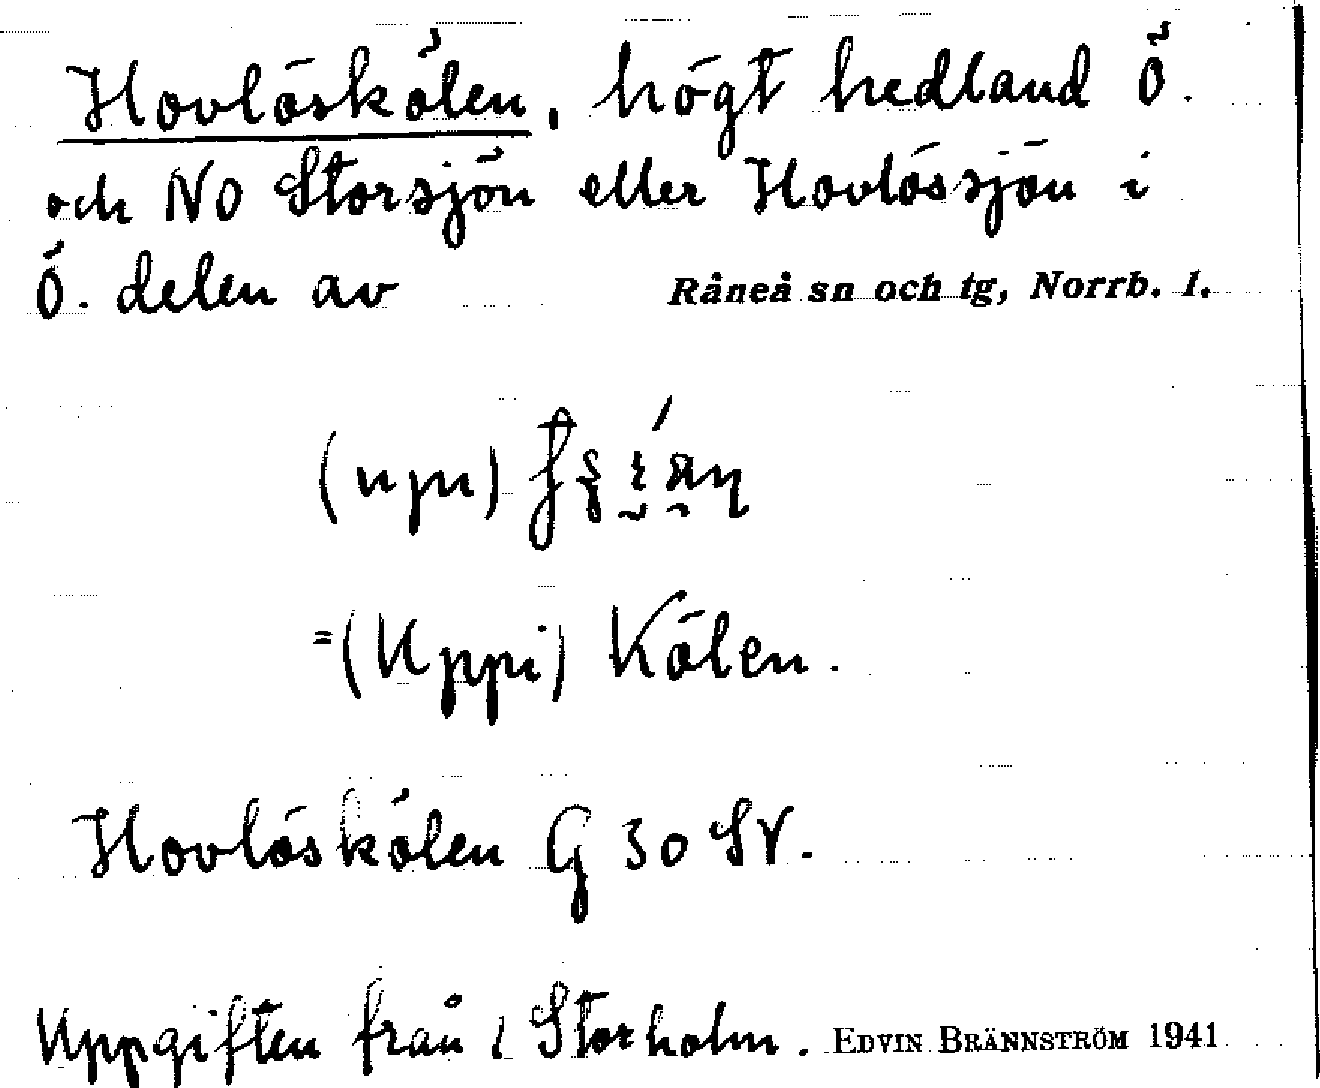 Hovlöskölen, högt hedland Ö.
och NO Storsjön eller Hovlössjön i
Ö. delen av Råneå sn och tg, Norrb. l.
(upi)
=(Uppi) Kölen.
Hovlöskölen G 30 SV.
Uppgiften från Storholm. EDVIN BRÄNNSTRÖM 1941